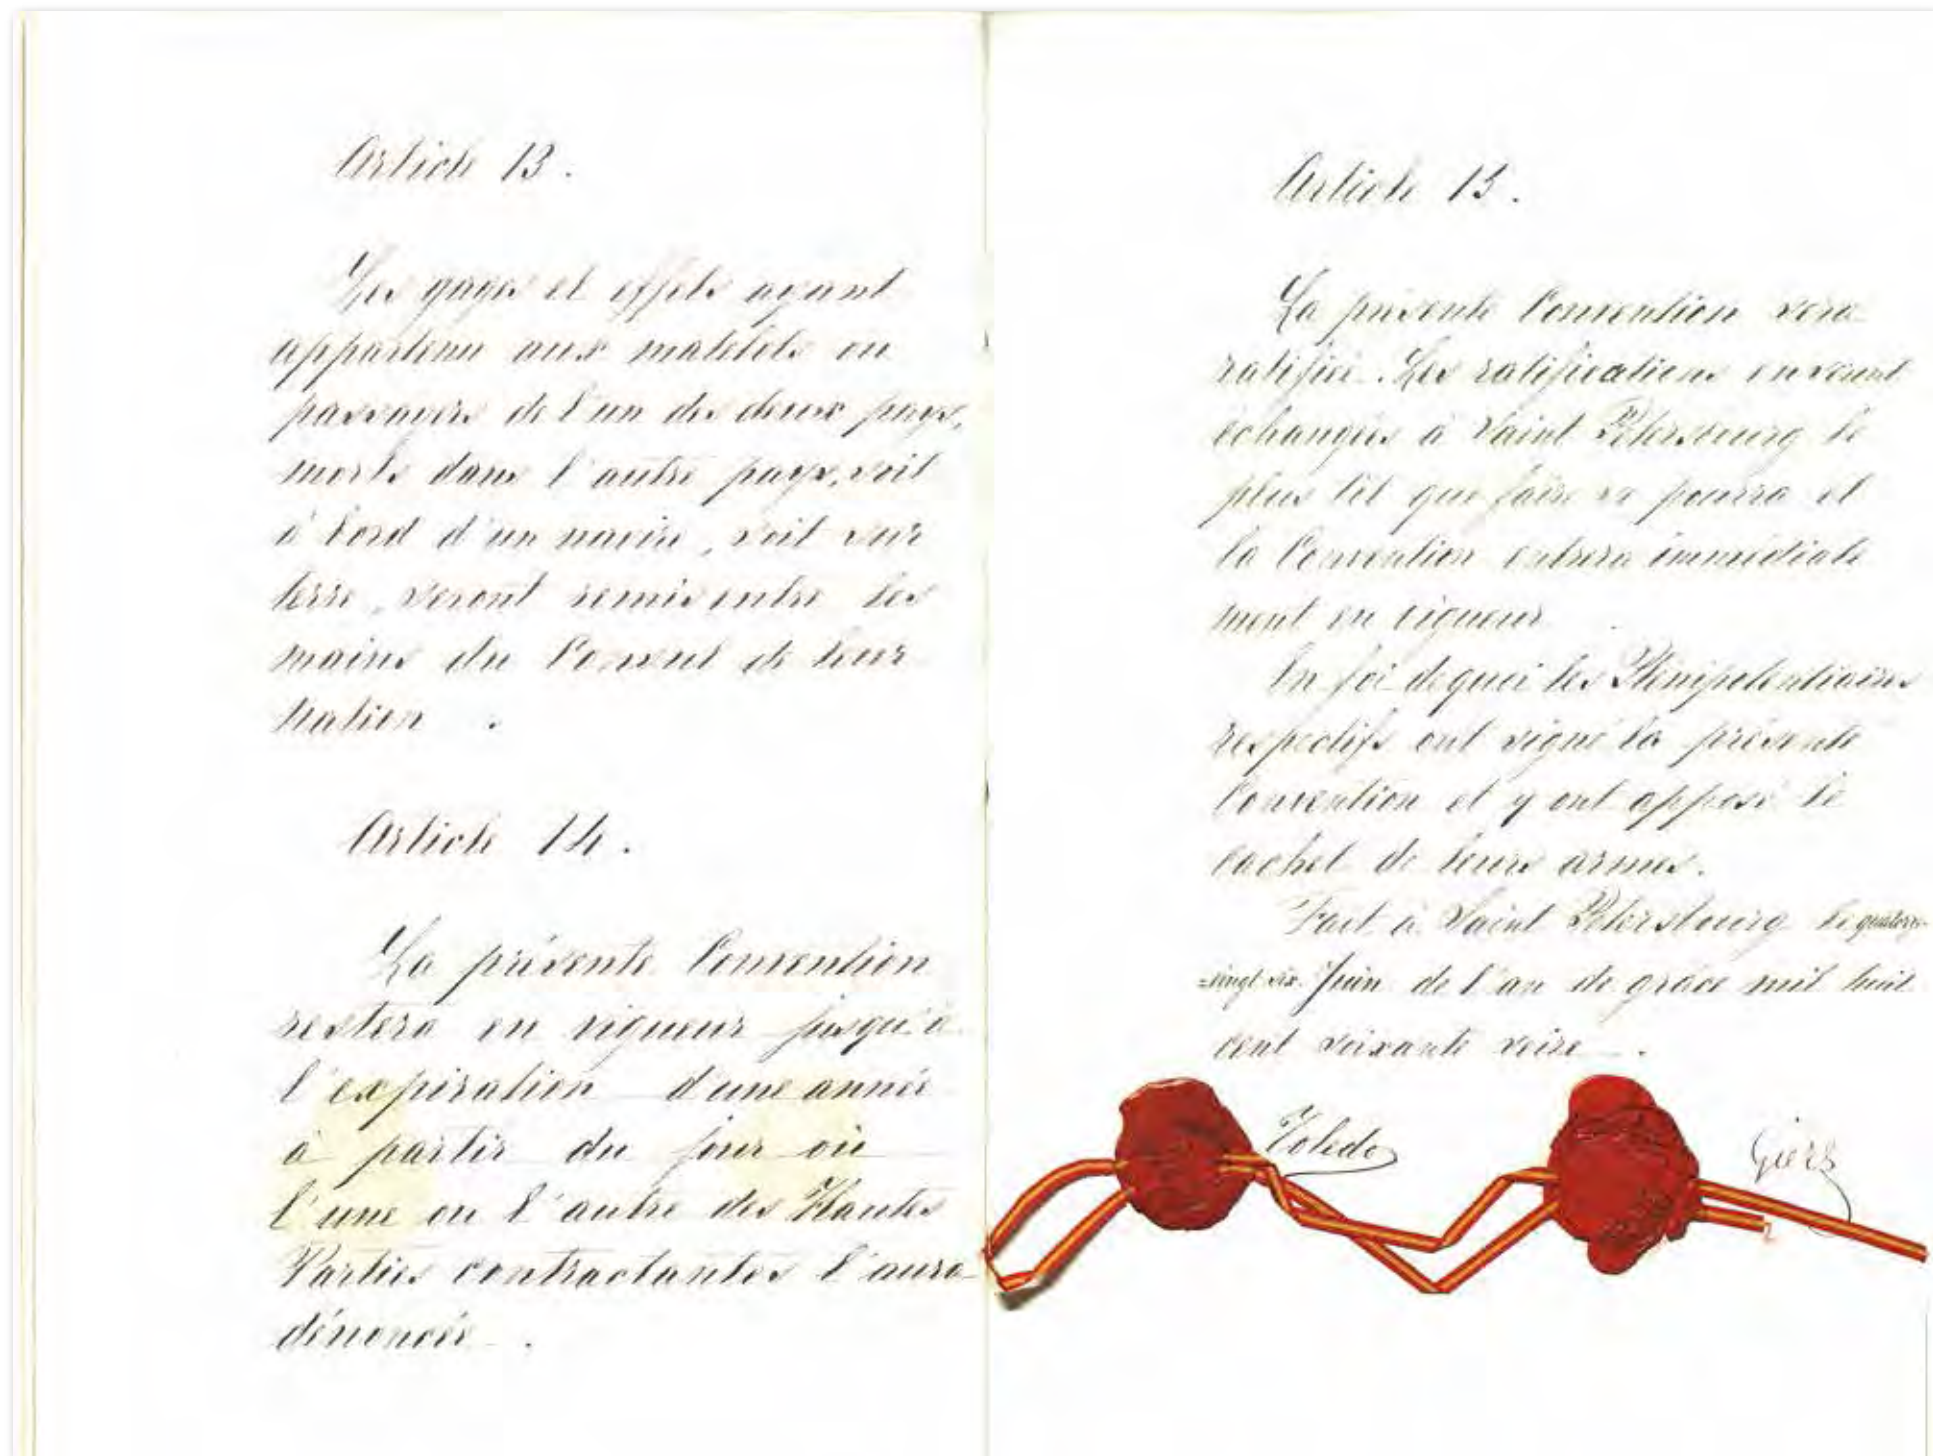 Article 13.
Les gages et effets ayant
appartenu aux matelots ou
passagers de l'un des deux pays,
morts dans l'autre pays, soit
à bord d'un navire, soit sur
terre, seront remis entre les
mains du Consul de leur
Nation.
Article 14.
La présente Convention
restera en vigueur jusqu'à
l'expiration d'une année
à partir du jour où
l'une ou l'autre des Hautes
Parties contractantes l'aura
dénoncée.
Article 15.
La présente Convention sera
ratifiée. Les ratifications en seront
échangées à Saint Pétersbourg le
plus tôt que faire se pourra et
la Convention entrera immédiate
ment en vigueur
En foi de quoi les Plénipotentiaires
respectifs ont signé la présente
Convention et y ont apposé le
cachet de leurs armes.
Fait à Saint Pétersbourg le quatorze
vingt six Juin de l'an de grâce mil huit
cent soixante seize.
Toledo Giers